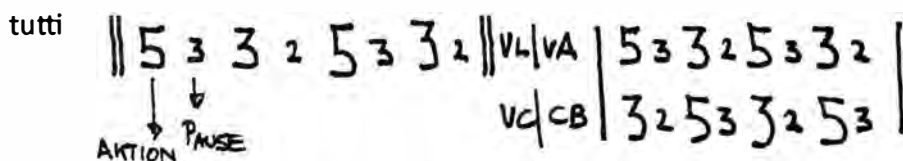 tutti 5 3 3 2 5 3 3 2 VL|VA 5 3 3 2 5 3 3 2
VC|CB 3 2 5 3 3 2 5 3
AKTION PAUSE